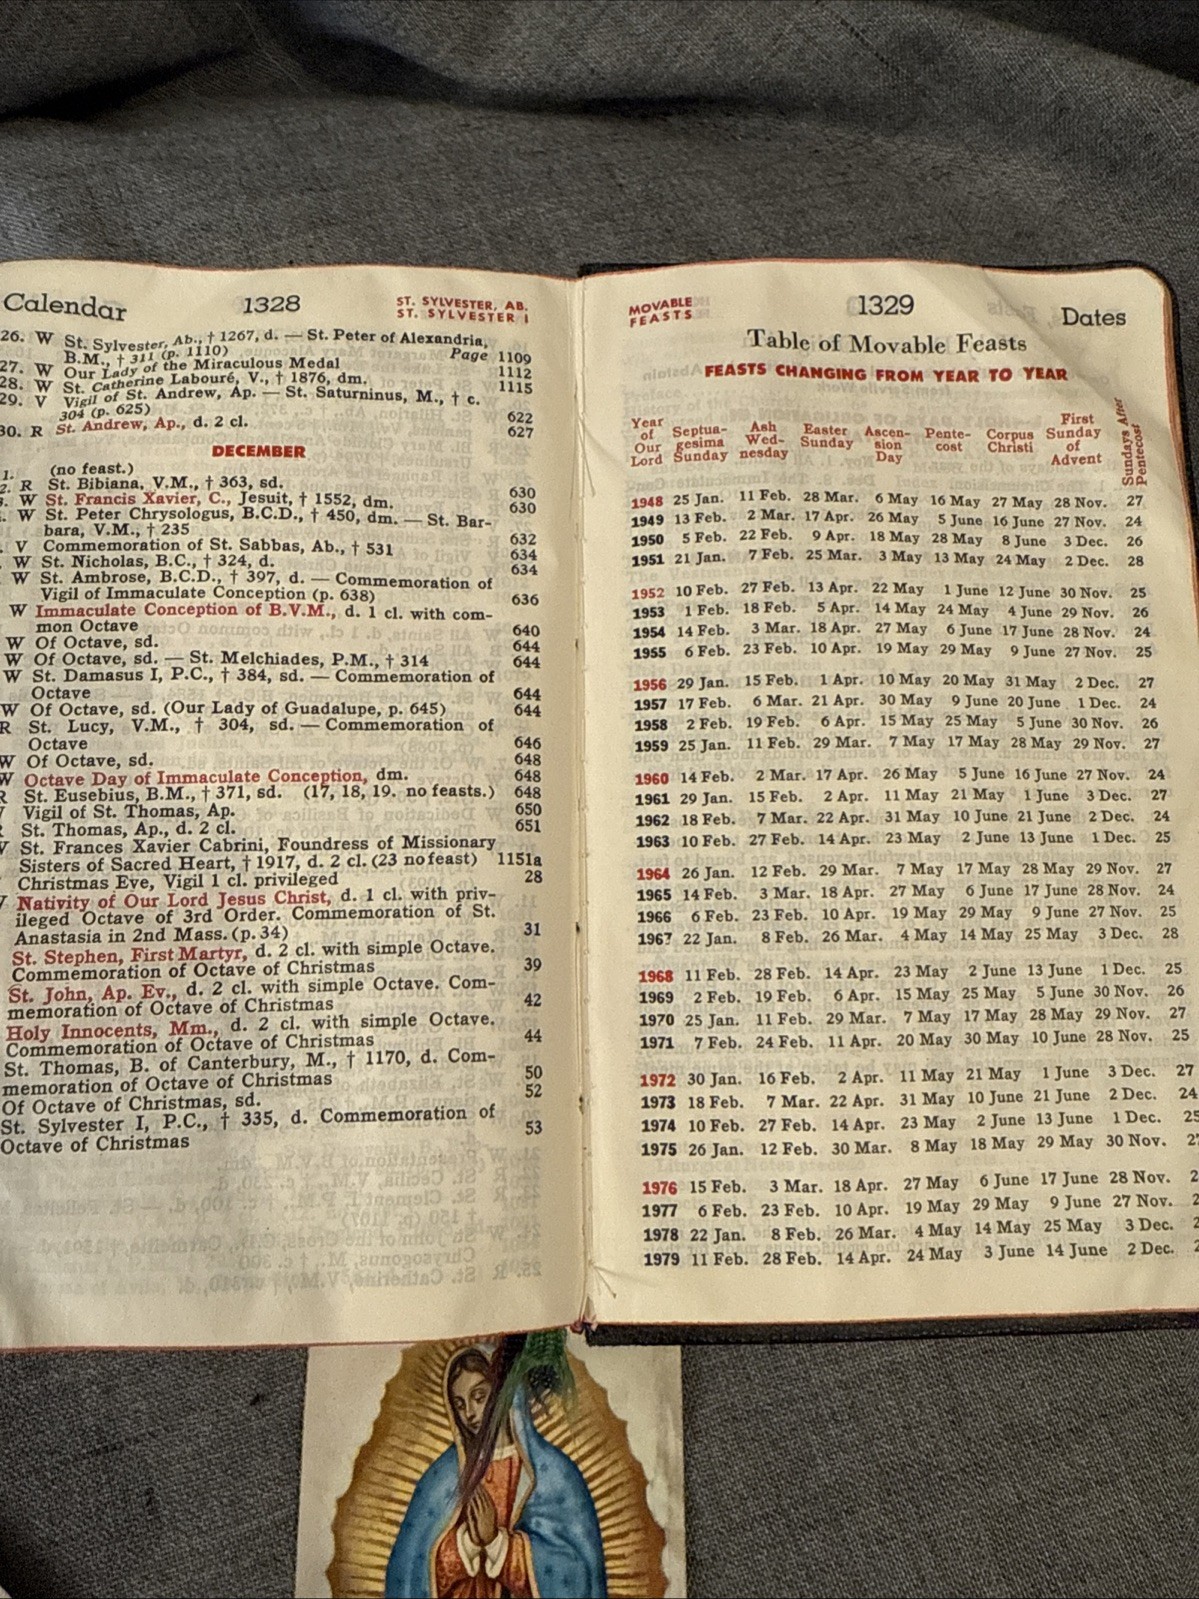 Calendar 1328 ST. SYLVESTER, AB.
ST. SYLVESTER I
26. W St. Sylvester, Ab., † 1267, d. — St. Peter of Alexandria,
B.M., † 311 (p. 1110) Page 1109
27. W Our Lady of the Miraculous Medal 1112
28. W St. Catherine Labouré, V., † 1876, dm. 1115
29. V Vigil of St. Andrew, Ap. — St. Saturninus, M., † c.
304 (p. 625) 622
30. R St. Andrew, Ap., d. 2 cl. 627
DECEMBER
1. (no feast.)
2. R St. Bibiana, V.M., † 363, sd. 630
. W St. Francis Xavier, C., Jesuit, † 1552, dm. 630
. W St. Peter Chrysologus, B.C.D., † 450, dm. — St. Bar-
bara, V.M., † 235 632
. V Commemoration of St. Sabbas, Ab., † 531 634
. W St. Nicholas, B.C., † 324, d. 634
W St. Ambrose, B.C.D., † 397, d. — Commemoration of
Vigil of Immaculate Conception (p. 638) 636
W Immaculate Conception of B.V.M., d. 1 cl. with com-
mon Octave 640
W Of Octave, sd. 644
W Of Octave, sd. — St. Melchiades, P.M., † 314 644
W St. Damasus I, P.C., † 384, sd. — Commemoration of
Octave 644
W Of Octave, sd. (Our Lady of Guadalupe, p. 645) 644
R St. Lucy, V.M., † 304, sd. — Commemoration of
Octave 646
W Of Octave, sd. 648
W Octave Day of Immaculate Conception, dm. 648
R St. Eusebius, B.M., † 371, sd. (17, 18, 19. no feasts.) 648
Vigil of St. Thomas, Ap. 650
St. Thomas, Ap., d. 2 cl. 651
St. Frances Xavier Cabrini, Foundress of Missionary
Sisters of Sacred Heart, † 1917, d. 2 cl. (23 no feast) 1151a
Christmas Eve, Vigil 1 cl. privileged 28
Nativity of Our Lord Jesus Christ, d. 1 cl. with priv-
ileged Octave of 3rd Order. Commemoration of St.
Anastasia in 2nd Mass. (p. 34) 31
St. Stephen, First Martyr, d. 2 cl. with simple Octave.
Commemoration of Octave of Christmas 39
St. John, Ap. Ev., d. 2 cl. with simple Octave. Com-
memoration of Octave of Christmas 42
Holy Innocents, Mm., d. 2 cl. with simple Octave.
Commemoration of Octave of Christmas 44
St. Thomas, B. of Canterbury, M., † 1170, d. Com-
memoration of Octave of Christmas 50
Of Octave of Christmas, sd. 52
St. Sylvester I, P.C., † 335, d. Commemoration of
Octave of Christmas 53
MOVABLE FEASTS 1329 Dates
Table of Movable Feasts
FEASTS CHANGING FROM YEAR TO YEAR
Year of Our Lord Septua-gesima Sunday Ash Wed-nesday Easter Sunday Ascen-sion Day Pente-cost Corpus Christi First Sunday of Advent Sundays After Pentecost
1948 25 Jan. 11 Feb. 28 Mar. 6 May 16 May 27 May 28 Nov. 27
1949 13 Feb. 2 Mar. 17 Apr. 26 May 5 June 16 June 27 Nov. 24
1950 5 Feb. 22 Feb. 9 Apr. 18 May 28 May 8 June 3 Dec. 26
1951 21 Jan. 7 Feb. 25 Mar. 3 May 13 May 24 May 2 Dec. 28
1952 10 Feb. 27 Feb. 13 Apr. 22 May 1 June 12 June 30 Nov. 25
1953 1 Feb. 18 Feb. 5 Apr. 14 May 24 May 4 June 29 Nov. 26
1954 14 Feb. 3 Mar. 18 Apr. 27 May 6 June 17 June 28 Nov. 24
1955 6 Feb. 23 Feb. 10 Apr. 19 May 29 May 9 June 27 Nov. 25
1956 29 Jan. 15 Feb. 1 Apr. 10 May 20 May 31 May 2 Dec. 27
1957 17 Feb. 6 Mar. 21 Apr. 30 May 9 June 20 June 1 Dec. 24
1958 2 Feb. 19 Feb. 6 Apr. 15 May 25 May 5 June 30 Nov. 26
1959 25 Jan. 11 Feb. 29 Mar. 7 May 17 May 28 May 29 Nov. 27
1960 14 Feb. 2 Mar. 17 Apr. 26 May 5 June 16 June 27 Nov. 24
1961 29 Jan. 15 Feb. 2 Apr. 11 May 21 May 1 June 3 Dec. 27
1962 18 Feb. 7 Mar. 22 Apr. 31 May 10 June 21 June 2 Dec. 24
1963 10 Feb. 27 Feb. 14 Apr. 23 May 2 June 13 June 1 Dec. 25
1964 26 Jan. 12 Feb. 29 Mar. 7 May 17 May 28 May 29 Nov. 27
1965 14 Feb. 3 Mar. 18 Apr. 27 May 6 June 17 June 28 Nov. 24
1966 6 Feb. 23 Feb. 10 Apr. 19 May 29 May 9 June 27 Nov. 25
1967 22 Jan. 8 Feb. 26 Mar. 4 May 14 May 25 May 3 Dec. 28
1968 11 Feb. 28 Feb. 14 Apr. 23 May 2 June 13 June 1 Dec. 25
1969 2 Feb. 19 Feb. 6 Apr. 15 May 25 May 5 June 30 Nov. 26
1970 25 Jan. 11 Feb. 29 Mar. 7 May 17 May 28 May 29 Nov. 27
1971 7 Feb. 24 Feb. 11 Apr. 20 May 30 May 10 June 28 Nov. 25
1972 30 Jan. 16 Feb. 2 Apr. 11 May 21 May 1 June 3 Dec. 27
1973 18 Feb. 7 Mar. 22 Apr. 31 May 10 June 21 June 2 Dec. 24
1974 10 Feb. 27 Feb. 14 Apr. 23 May 2 June 13 June 1 Dec. 25
1975 26 Jan. 12 Feb. 30 Mar. 8 May 18 May 29 May 30 Nov. 2
1976 15 Feb. 3 Mar. 18 Apr. 27 May 6 June 17 June 28 Nov. 2
1977 6 Feb. 23 Feb. 10 Apr. 19 May 29 May 9 June 27 Nov. 2
1978 22 Jan. 8 Feb. 26 Mar. 4 May 14 May 25 May 3 Dec. 2
1979 11 Feb. 28 Feb. 14 Apr. 24 May 3 June 14 June 2 Dec. 2